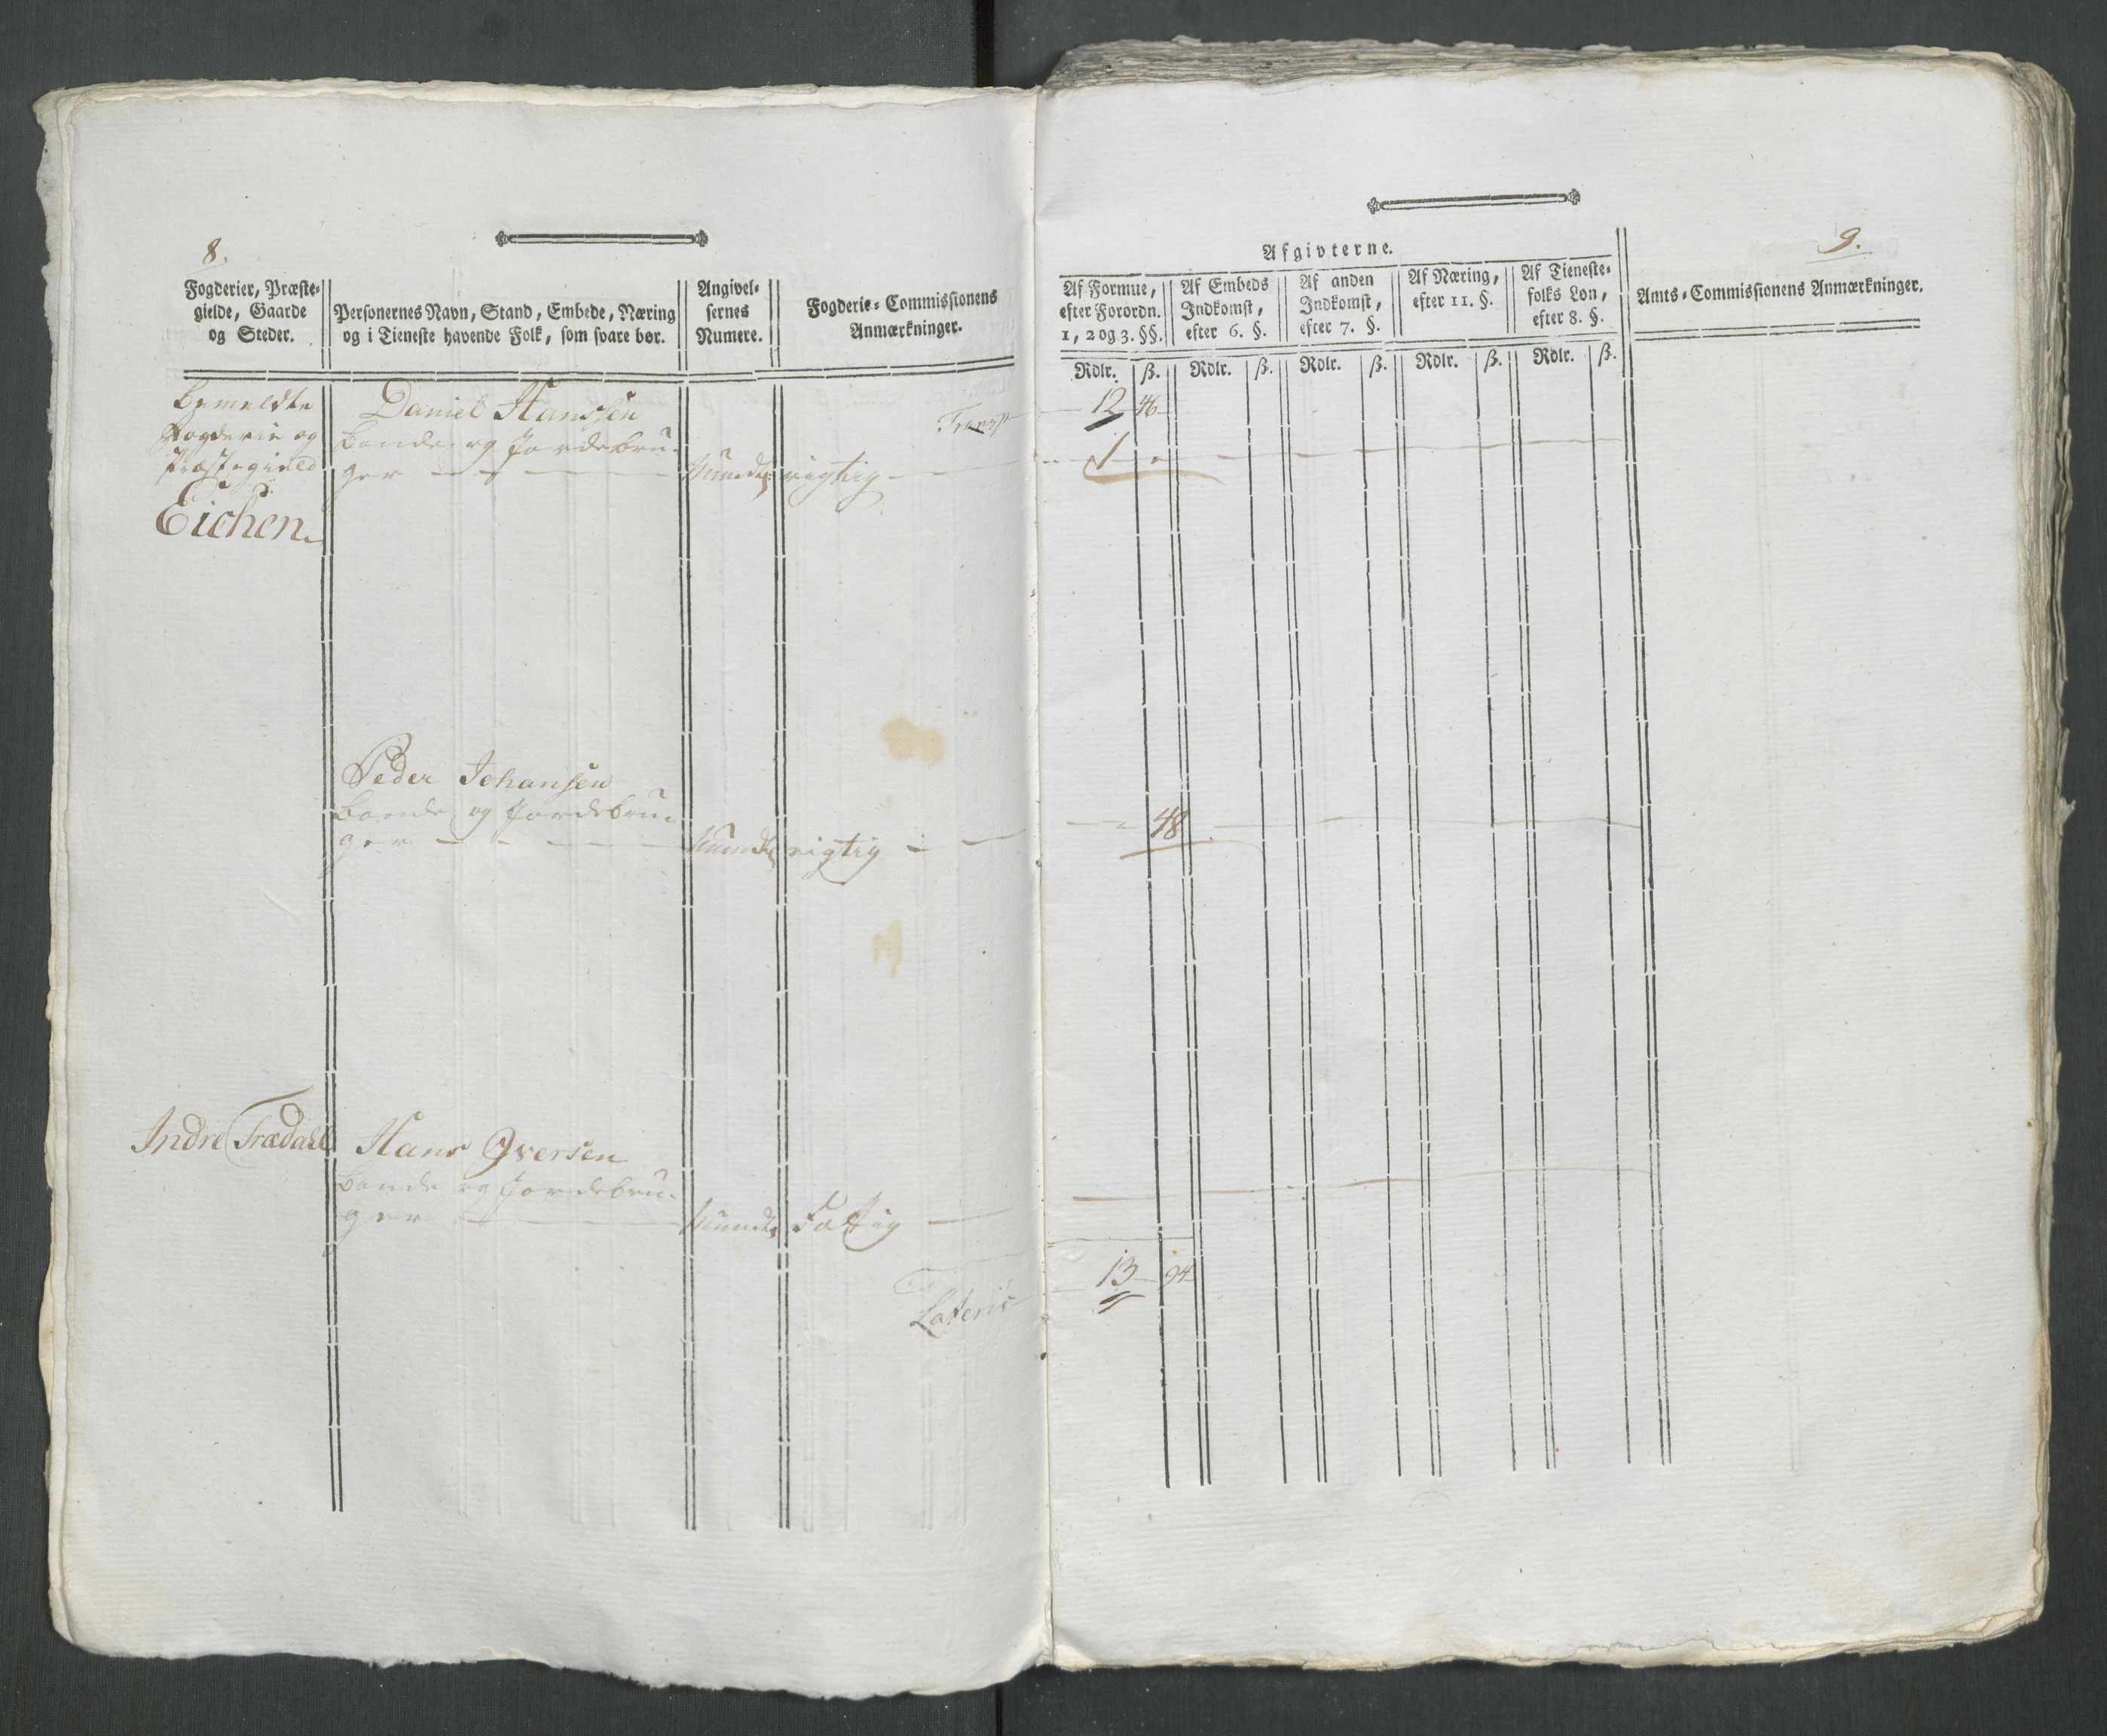 8.
Fogderier, Præste-
gielde, Gaarde
og Steder.
Personernes Navn, Stand, Embede, Næring
og i Tieneste havende Folk, som svare bør.
Angivel-
sernes
Numere.
Fogderie-Commissionens
Anmærkninger.
Bemeldte
Fogderie og
Præstegield
Eichen
Daniel Hanssen
Bonde og Jordebru-
ger
Mundtl: rigtig
Transp
Peder Johansen
Bonde og Jordebru-
ger
Mundtl rigtig
Indre Trædahl
Hans Iversen
Bonde og Jordebru-
ger
Mundtl Fattig
Lateris
9.
Afgivterne.
Af Formue,
efter Forordn.
1, 2 og 3. §§.
Af Embeds
Indkomst,
efter 6. §.
Af anden
Indkomst,
efter 7. §.
Af Næring,
efter 11. §.
Af Tieneste-
folks Løn,
efter 8. §.
Amts-Commissionens Anmærkninger.
Rdlr. ß. Rdlr. ß. Rdlr. ß. Rdlr. ß. Rdlr. ß.
12 46
1
48
13 94